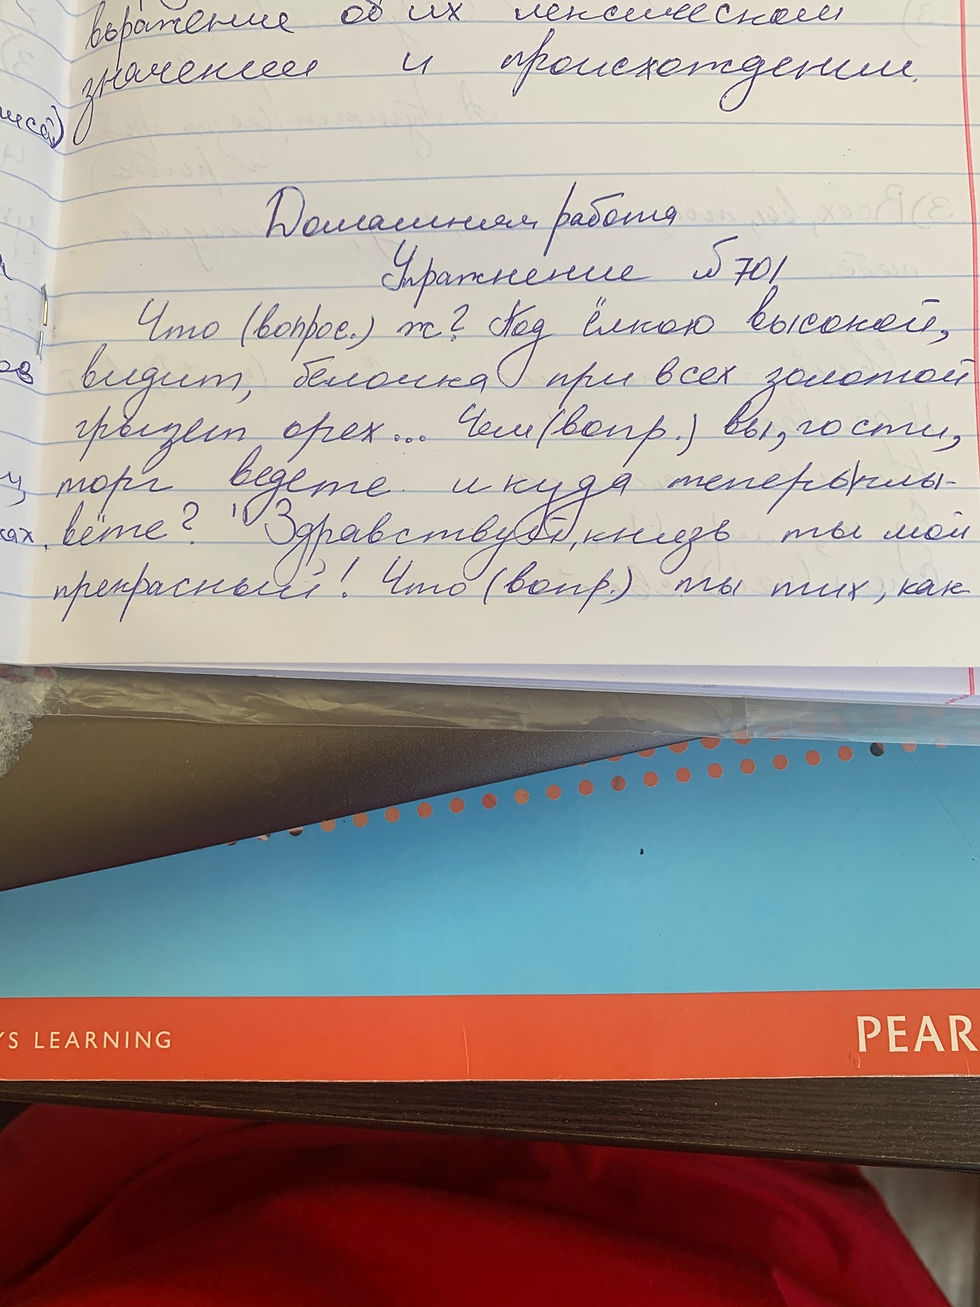 выражение об их лексическом
значении и происхождении.
Домашняя работа
Упражнение №701
Что (вопрос.) ж? Под ёлкою высокой,
видит, белочка при всех золотой
грызет орех... Чем (вопр.) вы, гости,
торг ведете и куда теперь плы-
вёте? "Здравствуй, князь ты мой
прекрасный! Что (вопр.) ты тих, как
YS LEARNING
PEAR